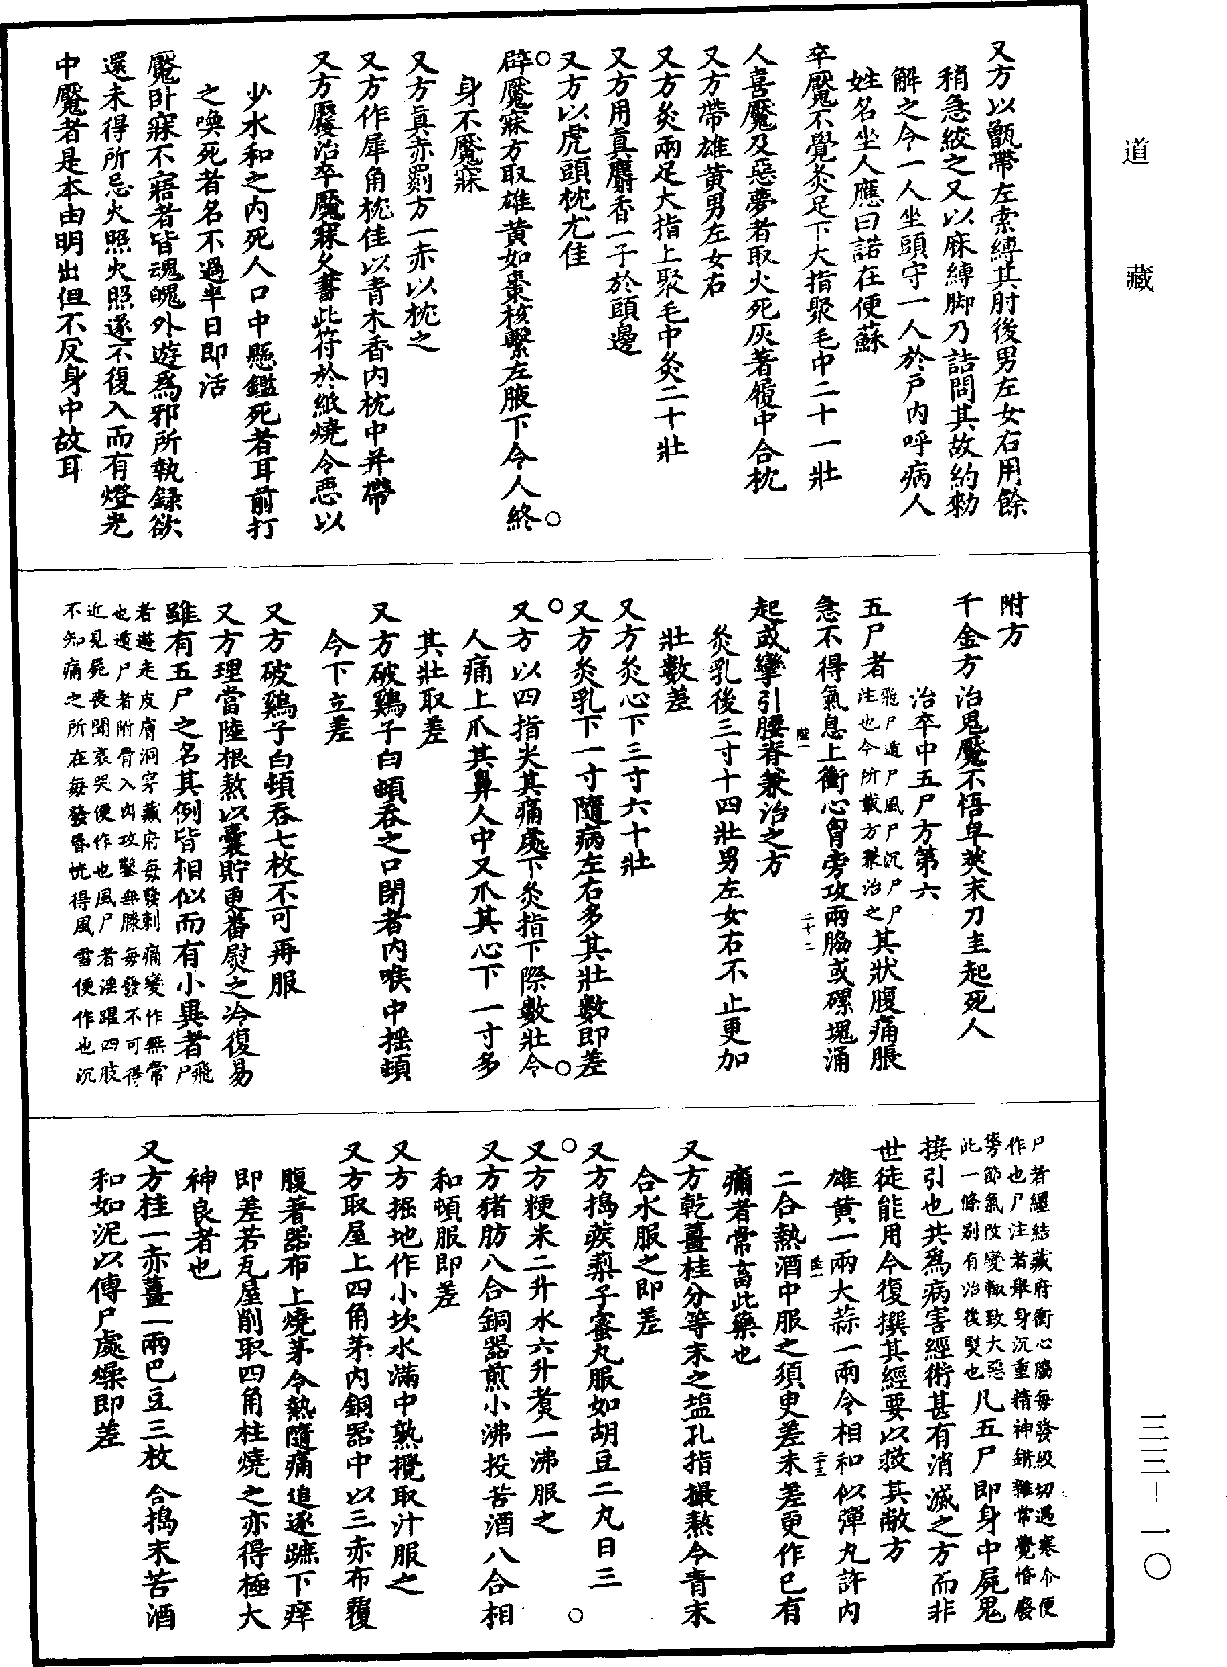 道藏
又方以甑帶左索縛其肘後男左女右用餘
稍急絞之又以麻縛脚乃詰問其故約勑
解之令一人坐頭守一人於戶內呼病人
姓名坐人應曰諾在便蘇
卒魘不覺灸足下大指聚毛中二十一壯
人喜魘及惡夢者取火死灰著履中合枕
又方帶雄黃男左女右
又方灸兩足大指上聚毛中灸二十壯
又方用真麝香一子於頭邊
又方以虎頭枕尤佳
辟魘寐方取雄黃如棗核繫左腋下令人終
身不魘寐
又方真赤罽方一赤以枕之
又方作犀角枕佳以青木香內枕中并帶
又方魘治卒魘寐久書此符於紙燒令惡以
少水和之內死人口中懸鑑死者耳前打
之喚死者名不過半日即活
魘卧寐不寤者皆魂魄外遊為邪所執錄欲
還未得所忌火照火照遂不復入而有燈光
中魘者是本由明出但不反身中故耳
附方
千金方治鬼魘不悟皂莢末刀圭起死人
治卒中五尸方第六
五尸者飛尸遁尸風尸沉尸尸注也今所載方兼治之其狀腹痛脹
急不得氣息上衝心胷旁攻兩脇或磥塊涌
陸一 二十二
起或攣引腰脊兼治之方
灸乳後三寸十四壯男左女右不止更加
壯數差
又方灸心下三寸六十壯
又方灸乳下一寸隨病左右多其壯數即差
又方以四指尖其痛處下灸指下際數壯令
人痛上爪其鼻人中又爪其心下一寸多
其壯取差
又方破鷄子白頓吞之口閉者內喉中搖頓
令下立差
又方破鷄子白頓吞七枚不可再服
又方理當陸根熬以囊貯更番熨之冷復易
雖有五尸之名其例皆相似而有小異者飛尸
者遊走皮膚洞穿藏府每發刺痛變作無常
也遁尸者附骨入肉攻鑿無勝每發不可得
近見屍喪聞哀哭便作也風尸者淫躍四肢
不知痛之所在每發昏恍得風雪便作也沉
尸者纏結藏府衝心脇每發絞切遇寒冷便
作也尸注者舉身沉重精神錯雜常覺惛廢
每節氣改變輙致大惡
此一條别有治後熨也凡五尸即身中屍鬼
接引也共為病害經術甚有消滅之方而非
世徒能用今復撰其經要以救其敝方
雄黃一兩大蒜一兩令相和似彈丸許內
陸一 二十三
二合熱酒中服之須臾差未差更作已有
痛者常畜此藥也
又方乾薑桂分等末之塩孔指撮熬令青末
合水服之即差
又方搗蒺䔧子蜜丸服如胡豆二丸日三
又方粳米二升水六升煮一沸服之
又方猪肪八合銅器煎小沸投苦酒八合相
和頓服即差
又方掘地作小坎水滿中熟攪取汁服之
又方取屋上四角茅內銅器中以三赤布覆
腹著器布上燒茅令熱隨痛追逐蹠下痒
即差若瓦屋削取四角柱燒之亦得極大
神良者也
又方桂一赤薑一兩巴豆三枚合搗末苦酒
和如泥以傅尸處燥即差
三三—一〇